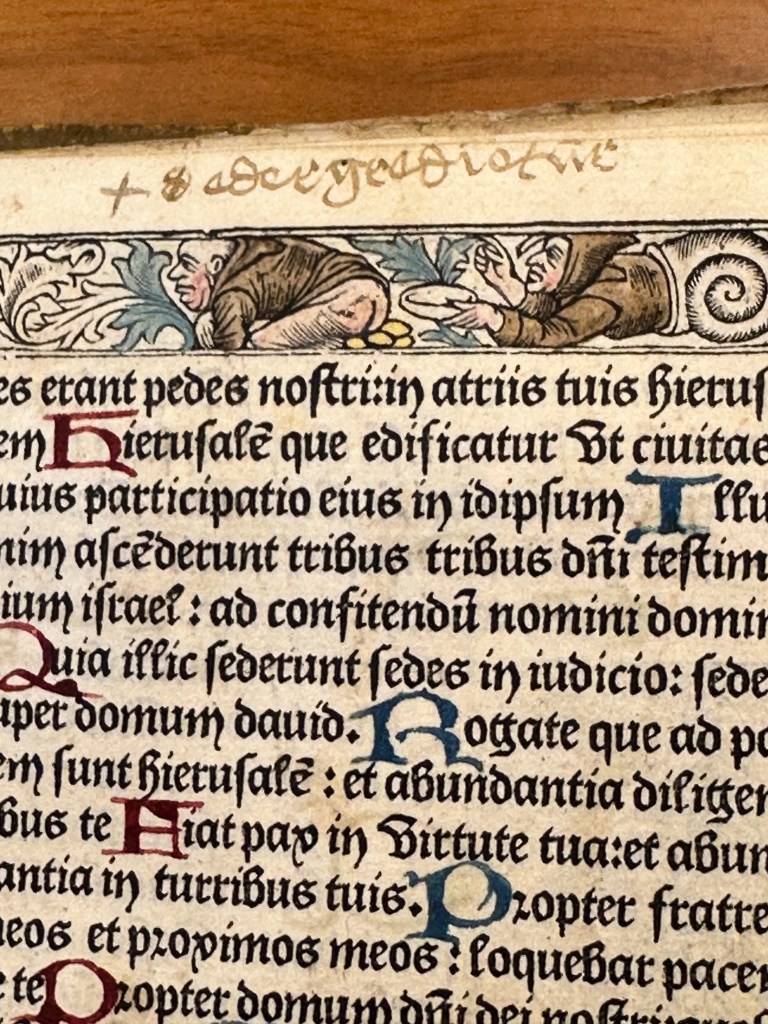 es erant pedes nostri:in atriis tuis hieruſ
em Hieruſalē que edificatur Vt ciuitas
uius participatio eius in idipſum Illu
nim aſcēderunt tribus tribus dñi teſtim
ium iſrael : ad confitendū nomini domin
Quia illic ſederunt ſedes in iudicio: ſede
uper domum dauid. Rogate que ad pa
em ſunt hieruſalē : et abundantia diligen
bus te Fiat pax in virtute tua:et abun
antia in turribus tuis. Propter fratre
meos et proximos meos : loquebar pacem
te Propter domum dñi dei noſtri: